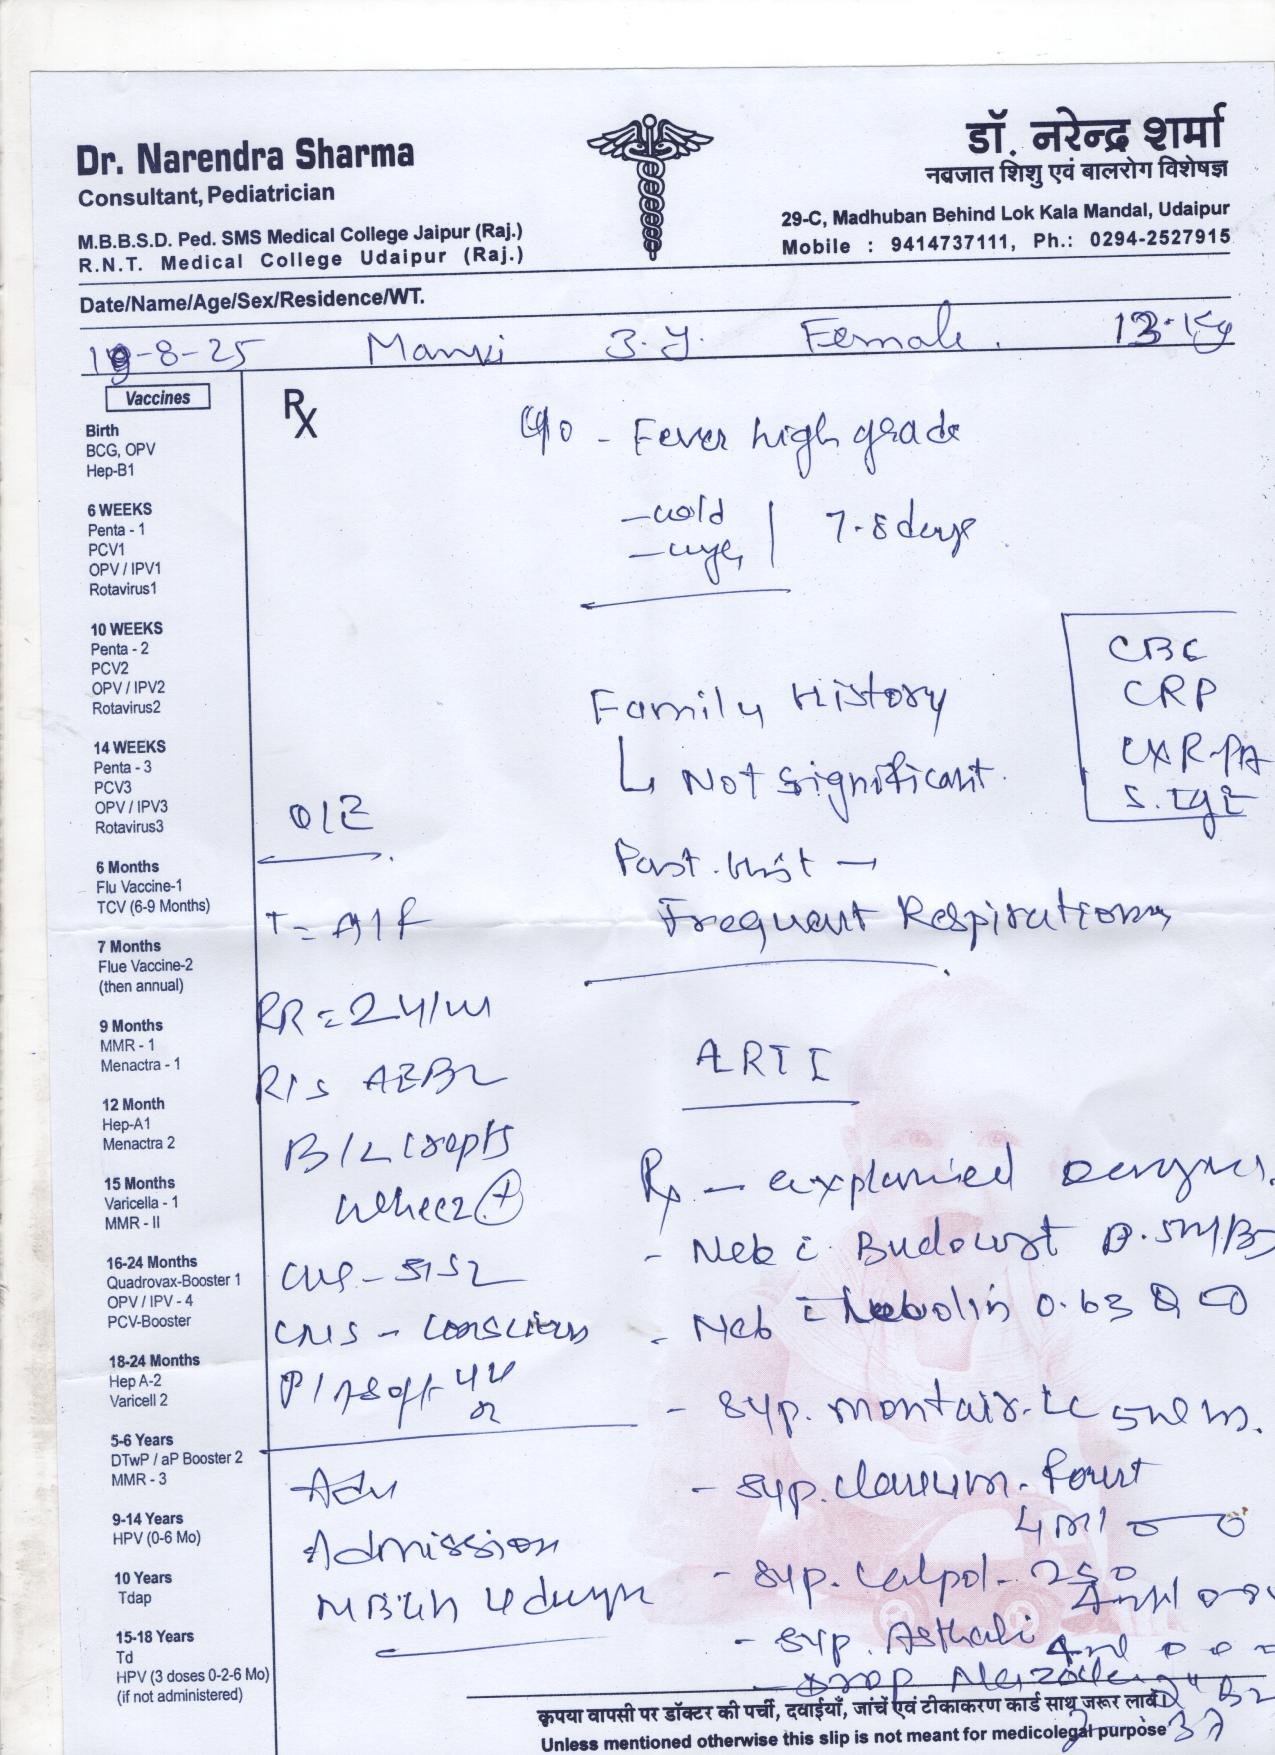 Dr. Narendra Sharma
Consultant, Pediatrician
M.B.B.S.D. Ped. SMS Medical College Jaipur (Raj.)
R.N.T. Medical College Udaipur (Raj.)
डॉ. नरेन्द्र शर्मा
नवजात शिशु एवं बालरोग विशेषज्ञ
29-C, Madhuban Behind Lok Kala Mandal, Udaipur
Mobile : 9414737111, Ph.: 0294-2527915
Date/Name/Age/Sex/Residence/WT.
19-8-25 3.y. Female. 13.Kg
Vaccines
Birth
BCG, OPV
Hep-B1
6 WEEKS
Penta - 1
PCV1
OPV / IPV1
Rotavirus1
10 WEEKS
Penta - 2
PCV2
OPV / IPV2
Rotavirus2
14 WEEKS
Penta - 3
PCV3
OPV / IPV3
Rotavirus3
6 Months
Flu Vaccine-1
TCV (6-9 Months)
7 Months
Flue Vaccine-2
(then annual)
9 Months
MMR - 1
Menactra - 1
12 Month
Hep-A1
Menactra 2
15 Months
Varicella - 1
MMR - II
16-24 Months
Quadrovax-Booster 1
OPV / IPV - 4
PCV-Booster
18-24 Months
Hep A-2
Varicell 2
5-6 Years
DTwP / aP Booster 2
MMR - 3
9-14 Years
HPV (0-6 Mo)
10 Years
Tdap
15-18 Years
Td
HPV (3 doses 0-2-6 Mo)
(if not administered)
Rx
c/o - Fever high grade
- cold
7-8 days
Family History
Not significant.
CBC
CRP
CXR-PA
S. IgE
Past. Hist →
Frequent
O/E
T = A/F
RR = 24/m
R/S AEBE
B/L crepts
wheez +
CVS - S1S2
CNS - conscious
P/A soft
Adv
Admission
ARTI
Rx - explained
- Neb c Budecort 0.5
- Neb c 0.63
- syp. montair-LC 5
- syp.
4 ml
- syp. calpol - 250
- syp.
- Drop
कृपया वापसी पर डॉक्टर की पर्ची, दवाईयाँ, जांचें एवं टीकाकरण कार्ड साथ जरूर लावें।
Unless mentioned otherwise this slip is not meant for medicolegal purpose